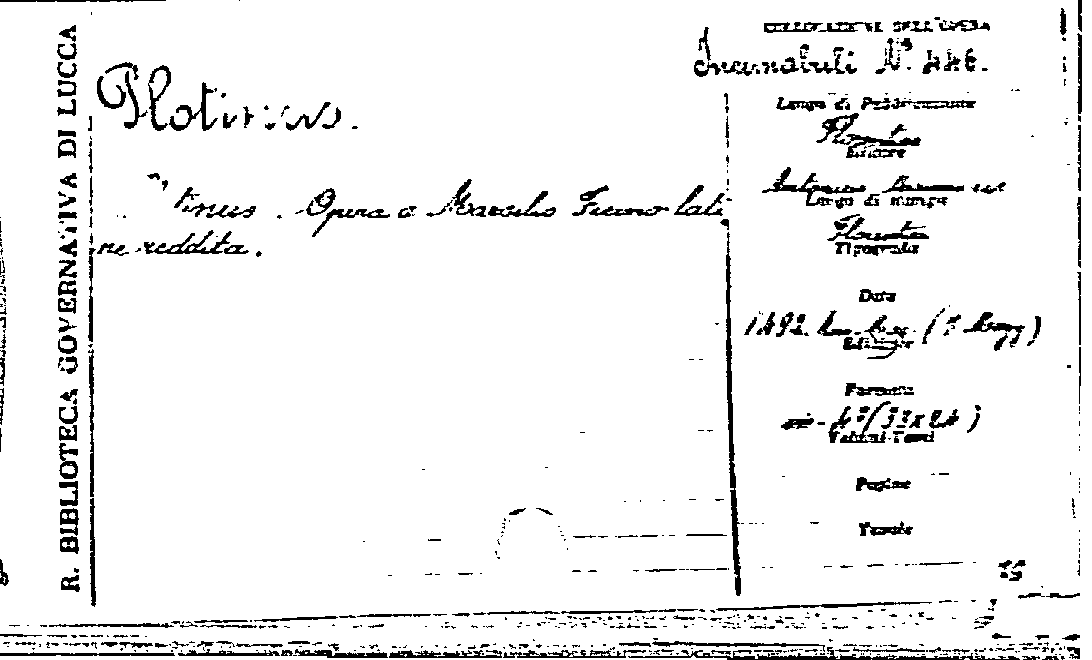 R. BIBLIOTECA GOVERNATIVA DI LUCCA
Plotinus.
tinus. Opera a Marsilio Ficino lati
ne reddita.
COLLOCAZIONE DELL'OPERA
Incunabuli N° 446.
Luogo di Pubblicazione
Florentiae
Editore
Antonius
Luogo di stampa
Florentiae
Tipografia
Data
1492. (7 Magg)
Edizione
Formato
4° (33x24)
Volumi-Tomi
Pagine
Tavole